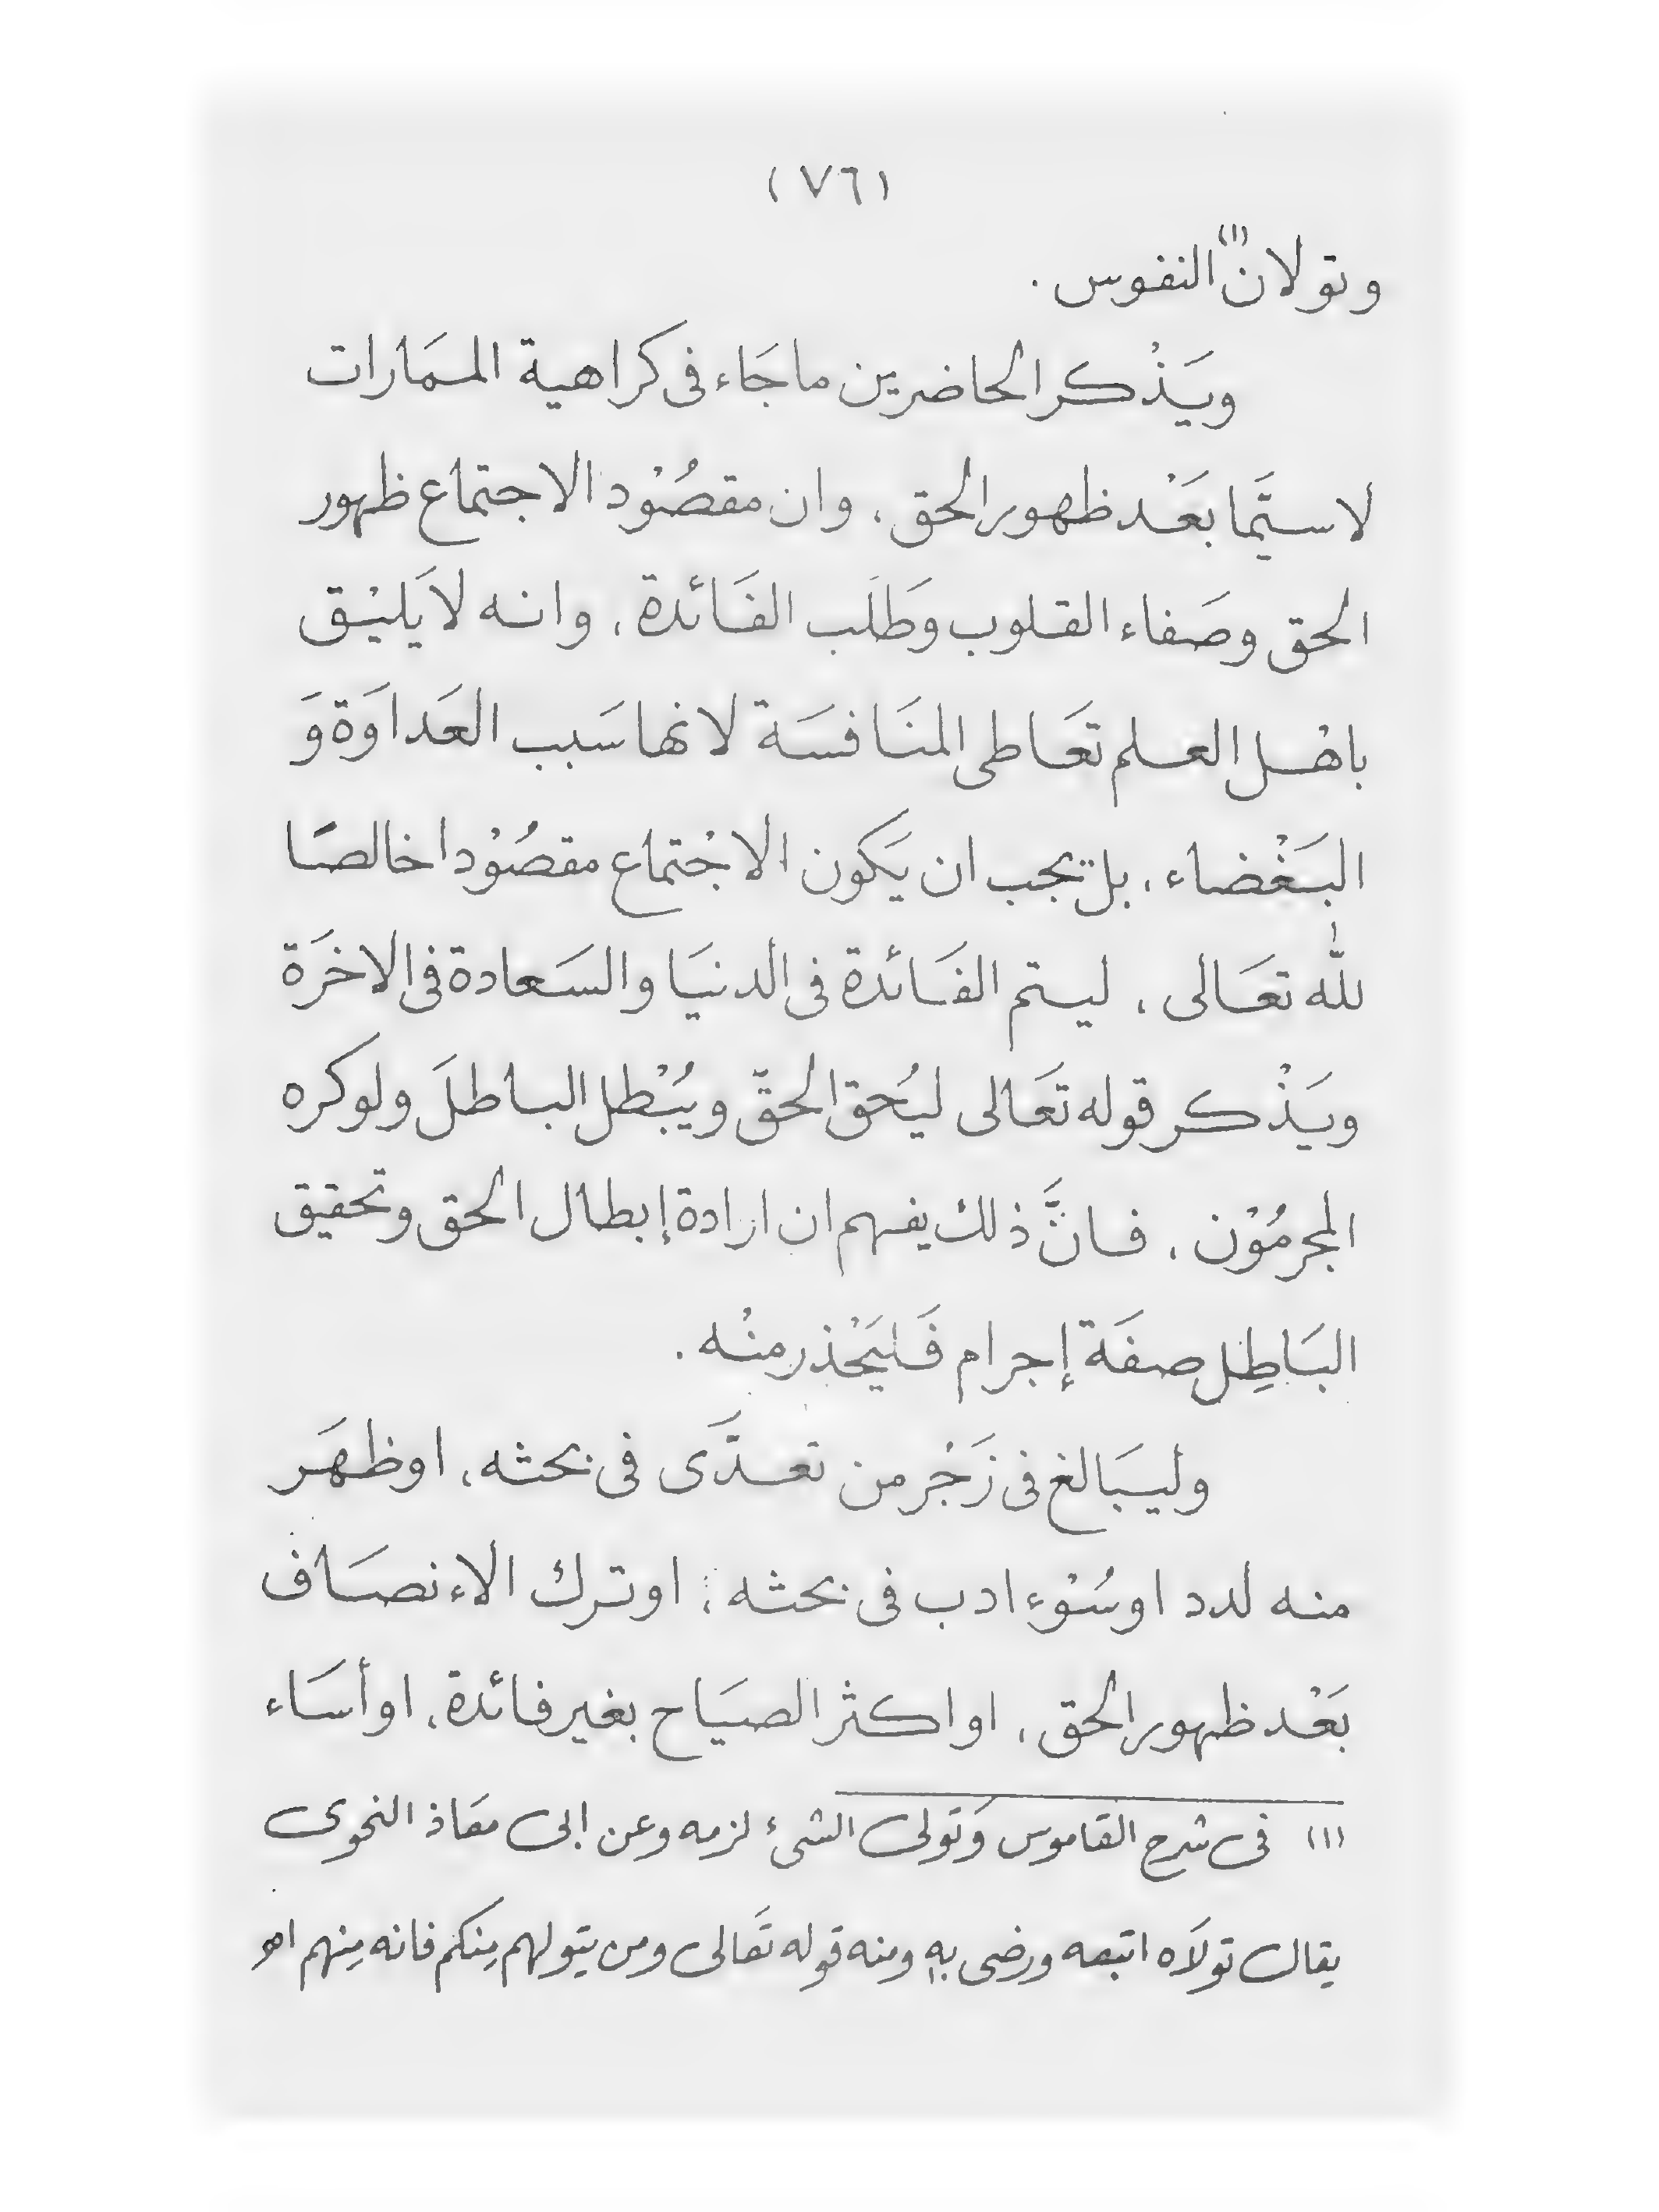 (٧٦)
وتولان(١) النفوس .
ويَذْكر الحاضرين ماجَاء فى كراهية المَمارات
لاسيَّما بَعْد ظهور الحق ، وان مقصُوْد الاجتماع ظهور
الحق وصَفاء القلوب وطَلَب الفَائدة ، وانه لايَليْق
باهْل العلم تعَاطى المنَافسَة لانها سَبب العَداوَة وَ
البَغْضاء ، بل يجب ان يَكون الاجْتماع مقصُوْدا خالصًا
لله تعَالى ، ليتم الفَائدة فى الدنيَا والسَعادة فى الاخرَة
ويَذْكر قوله تعَالى ليُحق الحقّ ويُبْطل الباطلَ ولوكره
المجرمُوْن ، فانَّ ذلك يفهم ان ارادة إبطال الحق وتحقيق
البَاطِل صفَة إجرام فَليَحْذر منْه .
وليبَالغ فى زَجْر من تعدَّى فى بحثه ، اوظهَر
منه لدد اوسُوْء ادب فى بحثه ؛ اوترك الاءنصَاف
بَعْد ظهور الحق ، اواكثر الصيَاح بغير فائدة ، اوأسَاء
(١) فى شرح القاموس وَتولى الشىء لزمه وعن ابى معَاذ النحوى
يقال تولاَه اتبعه ورضى به ومنه قوله تعَالى ومن يتولهم مِنكم فانه مِنهم اهـ